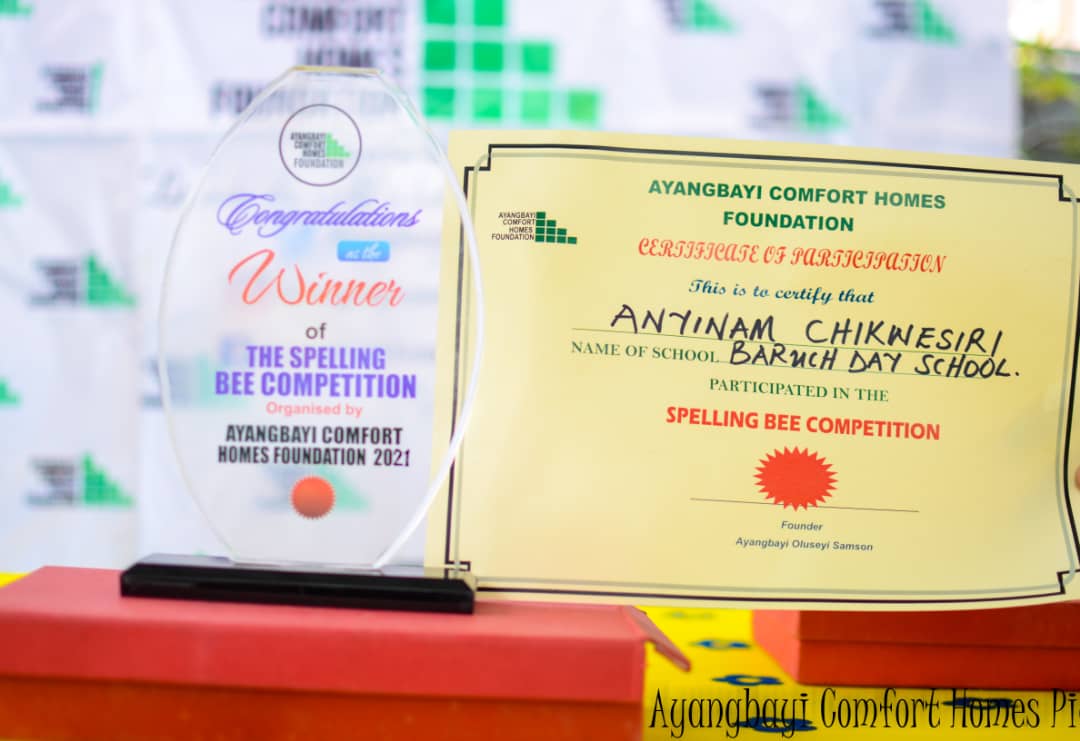 COMFORT
HOMES
FOUNDATION
AYANGBAYI
COMFORT
HOMES
FOUNDATION
Congratulations
as the
Winner
of
THE SPELLING
BEE COMPETITION
Organised by
AYANGBAYI COMFORT
HOMES FOUNDATION 2021
AYANGBAYI
COMFORT
HOMES
FOUNDATION
AYANGBAYI COMFORT HOMES
FOUNDATION
CERTIFICATE OF PARTICIPATION
This is to certify that
ANYINAM CHIKWESIRI
NAME OF SCHOOL BARUCH DAY SCHOOL.
PARTICIPATED IN THE
SPELLING BEE COMPETITION
Founder
Ayangbayi Oluseyi Samson
Ayangbayi Comfort Homes Pi